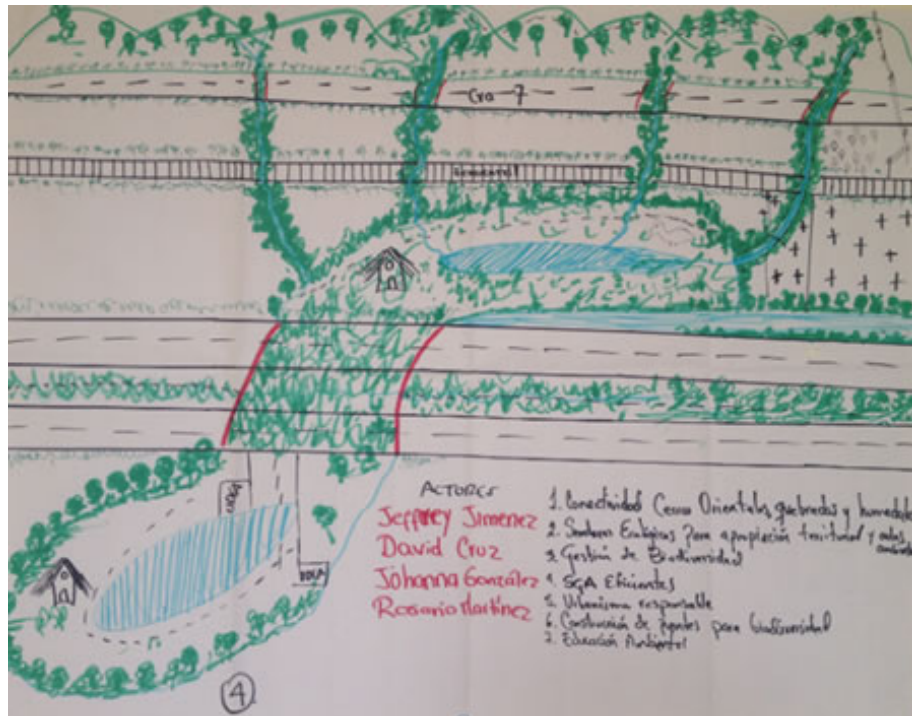 Cra 7
ACTORES
Jeffrey Jimenez
David Cruz
Johanna González
Rosario Martínez
1. Conectividad Cerros Orientales, quebradas y humedales
2. Senderos Ecológicos Para apropiación territorial y
3. Gestión de Biodiversidad
4. SGA Eficientes
5. Urbanismo responsable
6. Construcción de puentes para biodiversidad
7. Educación Ambiental
4